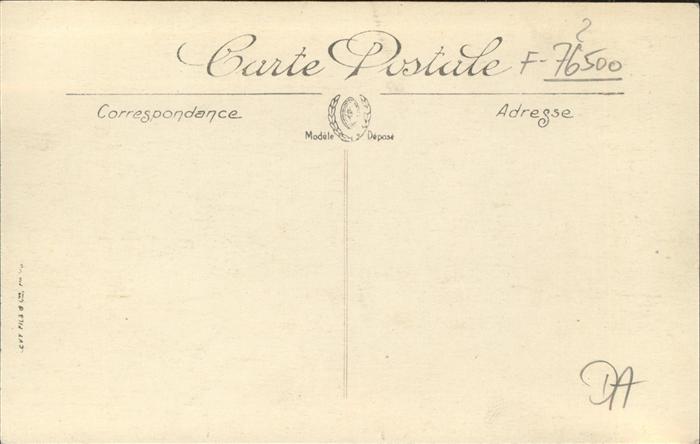 Carte Postale F-76500
?
Correspondance Adresse
Modèle Déposé
DA